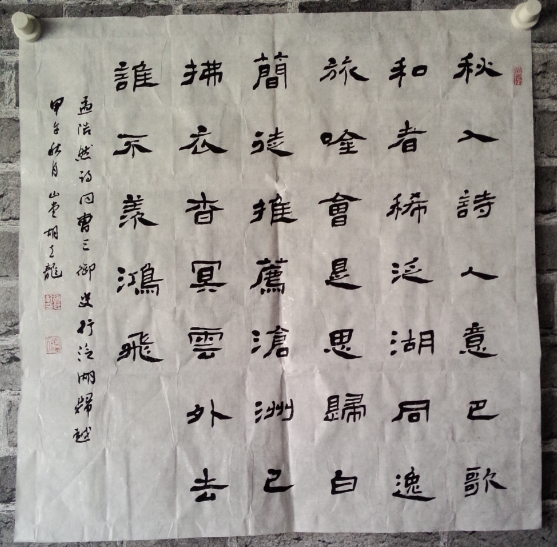 秋入詩人意巴歌
和者稀泛湖同逸
旅唫會是思歸白
簡徒推薦滄洲已
拂衣杳冥雲外去
誰不羨鴻飛
孟浩然诗同曹三御史行泛湖歸越
甲午秋月山胡龍